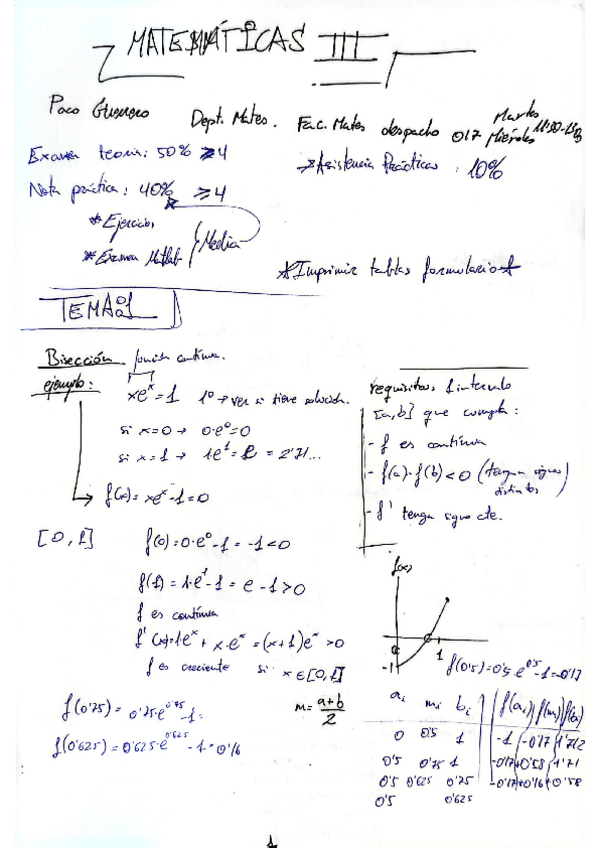 MATEMÁTICAS III
Paco Guerrero Dept. Mates. Fac. Mates despacho 017 Martes Miércoles 11:30-13
Examen teoría: 50% ≥4
→ Asistencia Prácticas : 10%
Nota práctica: 40% ≥4
* Ejercicios
* Examen Matlab
Media
*Imprimir tablas formulario*
TEMA 1
Bisección función continua.
ejemplo:
xeˣ = 1 1º → ver si tiene solución.
si x=0 → 0·e⁰=0
si x=1 → 1e¹ = e = 2'71...
→ f(x) = xeˣ-1=0
requisitos: 1 intervalo
[a,b] que cumpla:
- f es continua
- f(a)·f(b) < 0 (tengan signos distintos)
- f' tenga signo cte.
[0,1] f(0)=0·e⁰-1 = -1<0
f(1) = 1·e¹-1 = e-1>0
f es continua
f'(x)=1eˣ + x·eˣ = (x+1)eˣ >0
f es creciente si x∈[0,1]
f(x)
-1
1
f(0'5) = 0'5·e⁰'⁵-1=-0'17
m = a+b / 2
f(0'75) = 0'75·e⁰'⁷⁵-1=
f(0'625) = 0'625·e⁰'⁶²⁵-1=0'16
aᵢ mᵢ bᵢ f(aᵢ) f(mᵢ)
0 0'5 1 -1 -0'17 1'712
0'5 0'75 1 -0'17 +0'58 1'71
0'5 0'625 0'75 -0'17 +0'16 +0'58
0'5 0'625
1